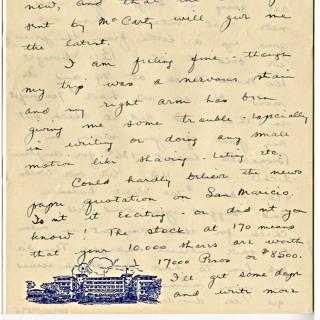 now, and that the
sent by McCarty will give me
the latest.
I am feeling fine - though
my trip was a nervous strain
and my right arm has been
giving me some trouble - especially
in writing or doing any small
motion like shaving - eating etc.
Could hardly believe the news
paper quotation on San Maricio.
Isn't it Exciting - or did n't you
know! The stock at 170 means
that your 10,000 shares are worth
17000 Pesos or $8500.
I'll get some dope
and write more